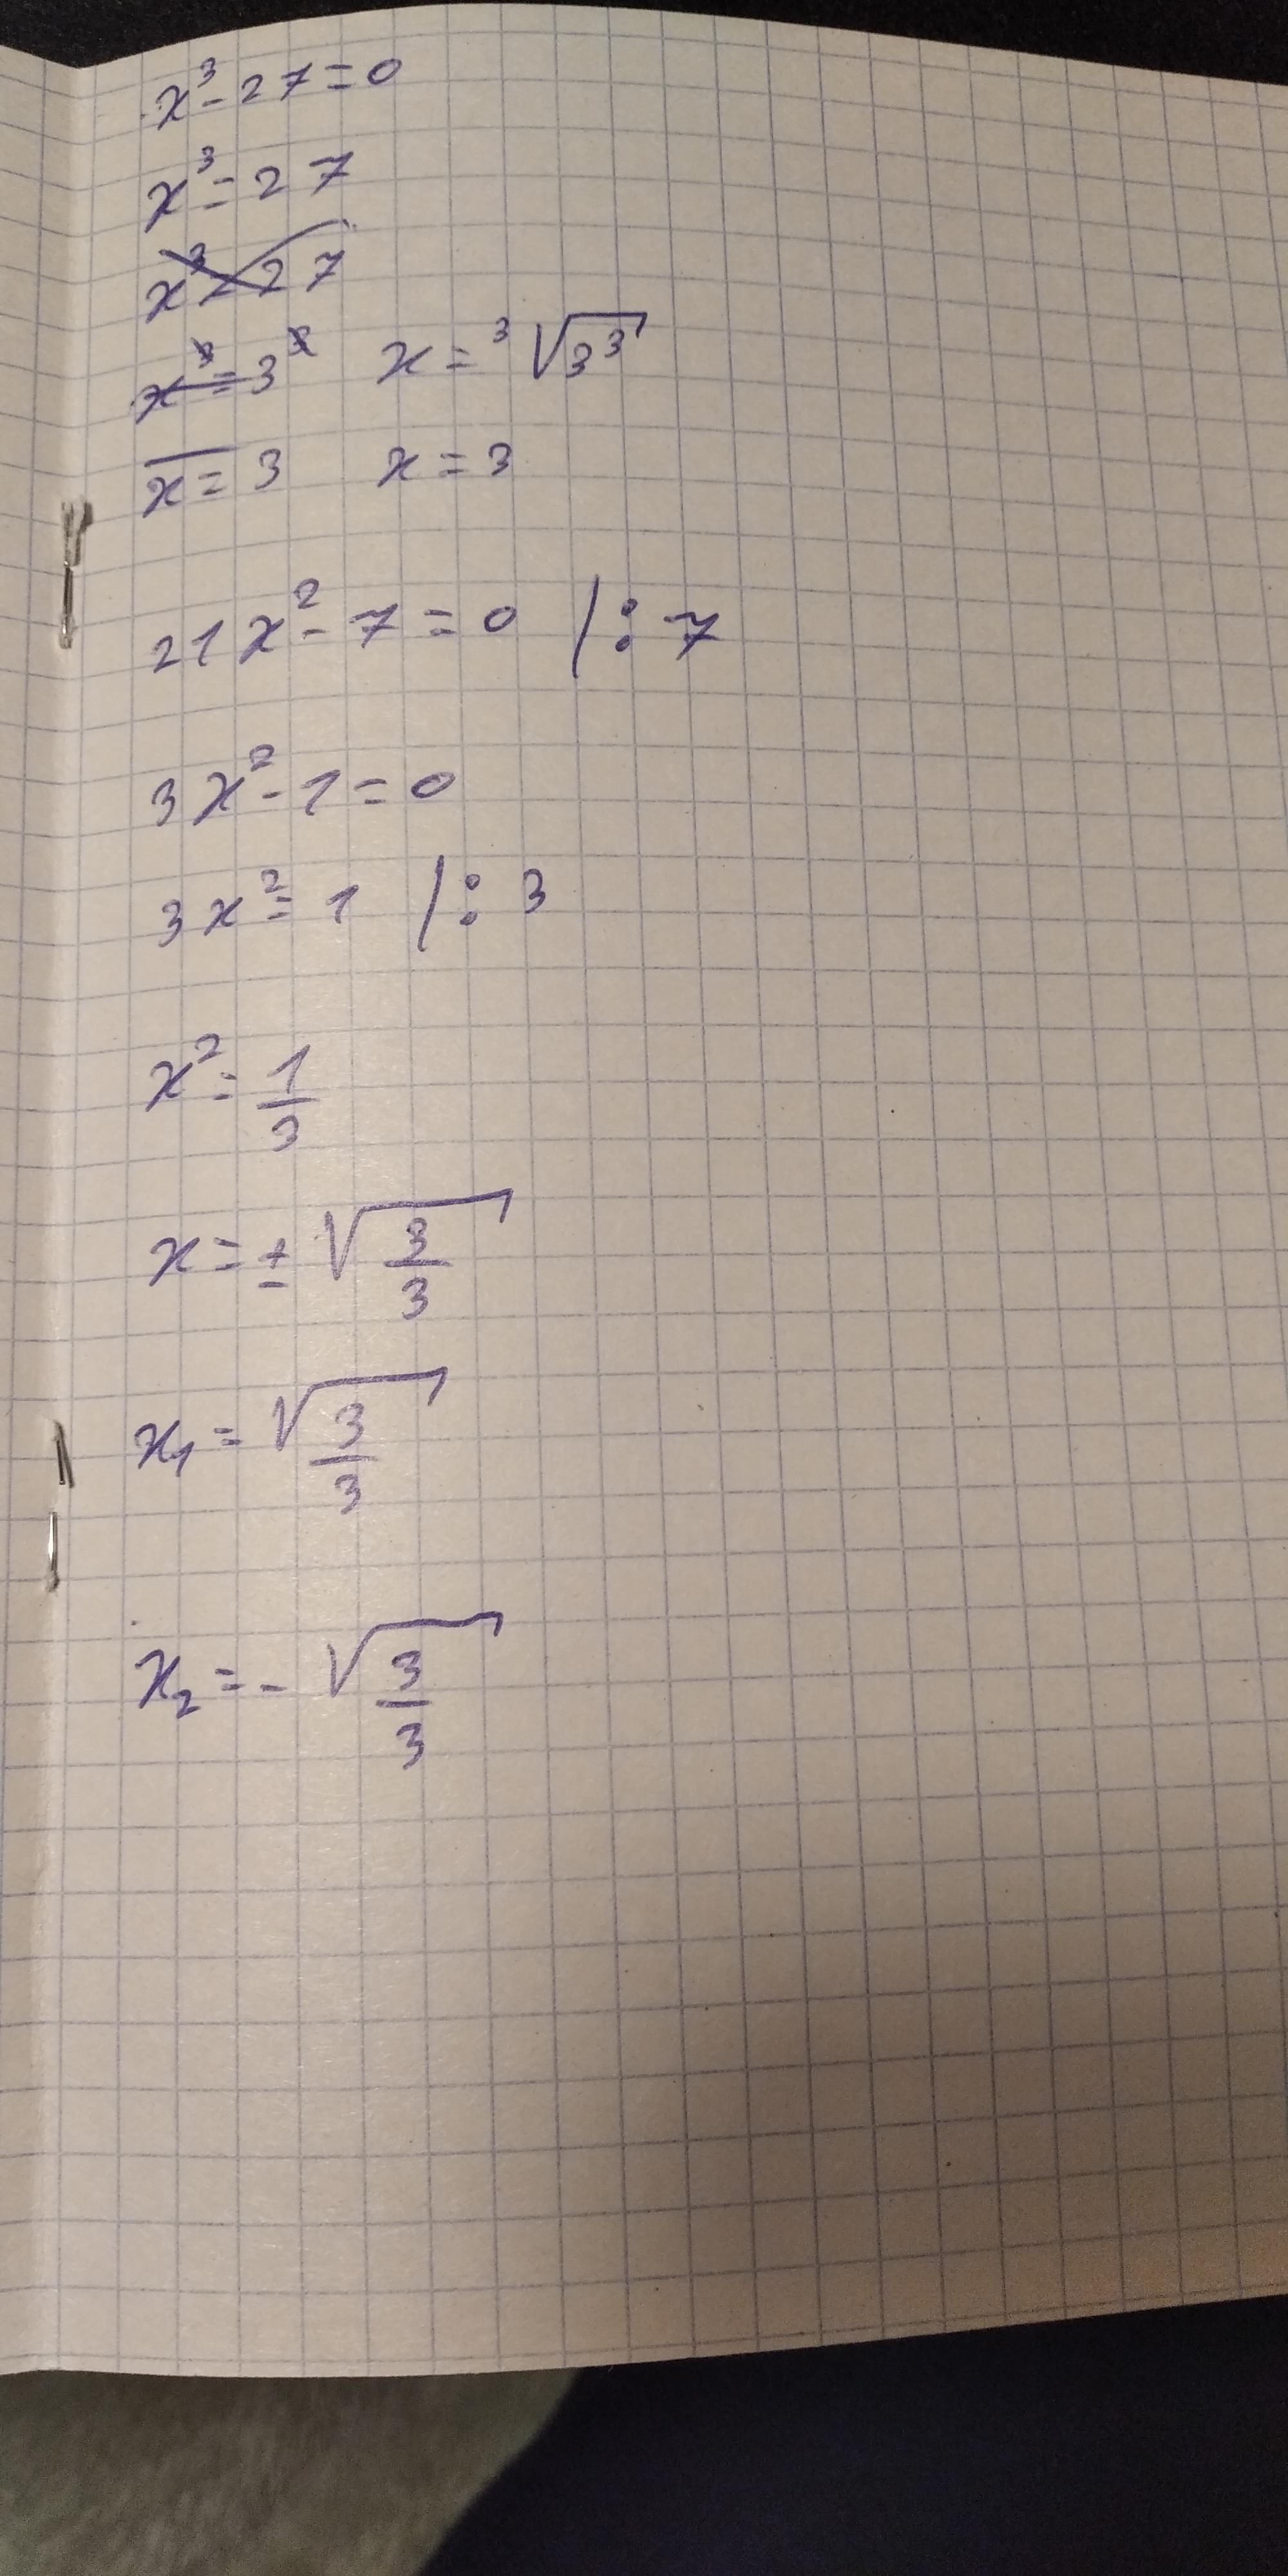 x³-27=0
x³=27
x³=27
x³=3³ x=³√3³
x=3 x=3
21x²-7=0 /:7
3x²-1=0
3x²=1 /:3
x²=1/3
x=±√(3/3)
x₁=√(3/3)
x₂=-√(3/3)